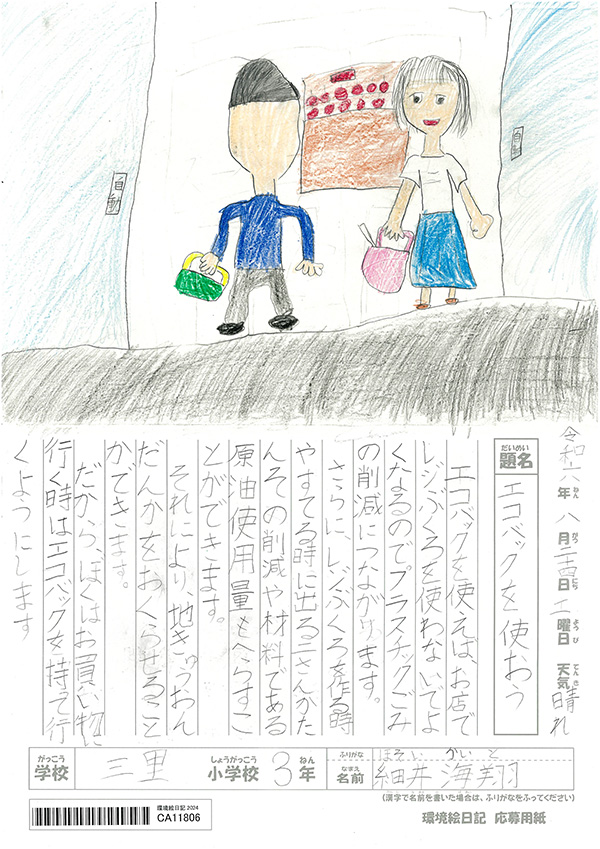 自動
自動
令和六年八月二十四日土曜日天気晴れ
ねん
がつ
にち
ようび
てんき
だいめい
題名
エコバックを使おう
エコバックを使えば、お店で
レジぶくろを使わないでよ
くなるのでプラスチックごみ
の削減につながります。
さらに、レジぶくろを作る時
やすてる時に出る二さんかた
んその削減や材料である
原油使用量もへらすこ
とができます。
それにより、地きゅうおん
だんかをおくらせること
ができます。
だから、ぼくはお買い物に
行く時はエコバックを持って行
くようにします
がっこう
学校
三里
しょうがっこう
小学校
3
ねん
年
ふりがな
ほそい かいと
なまえ
名前
細井海翔
(漢字で名前を書いた場合は、ふりがなをふってください)
環境絵日記2024
CA11806
環境絵日記 応募用紙